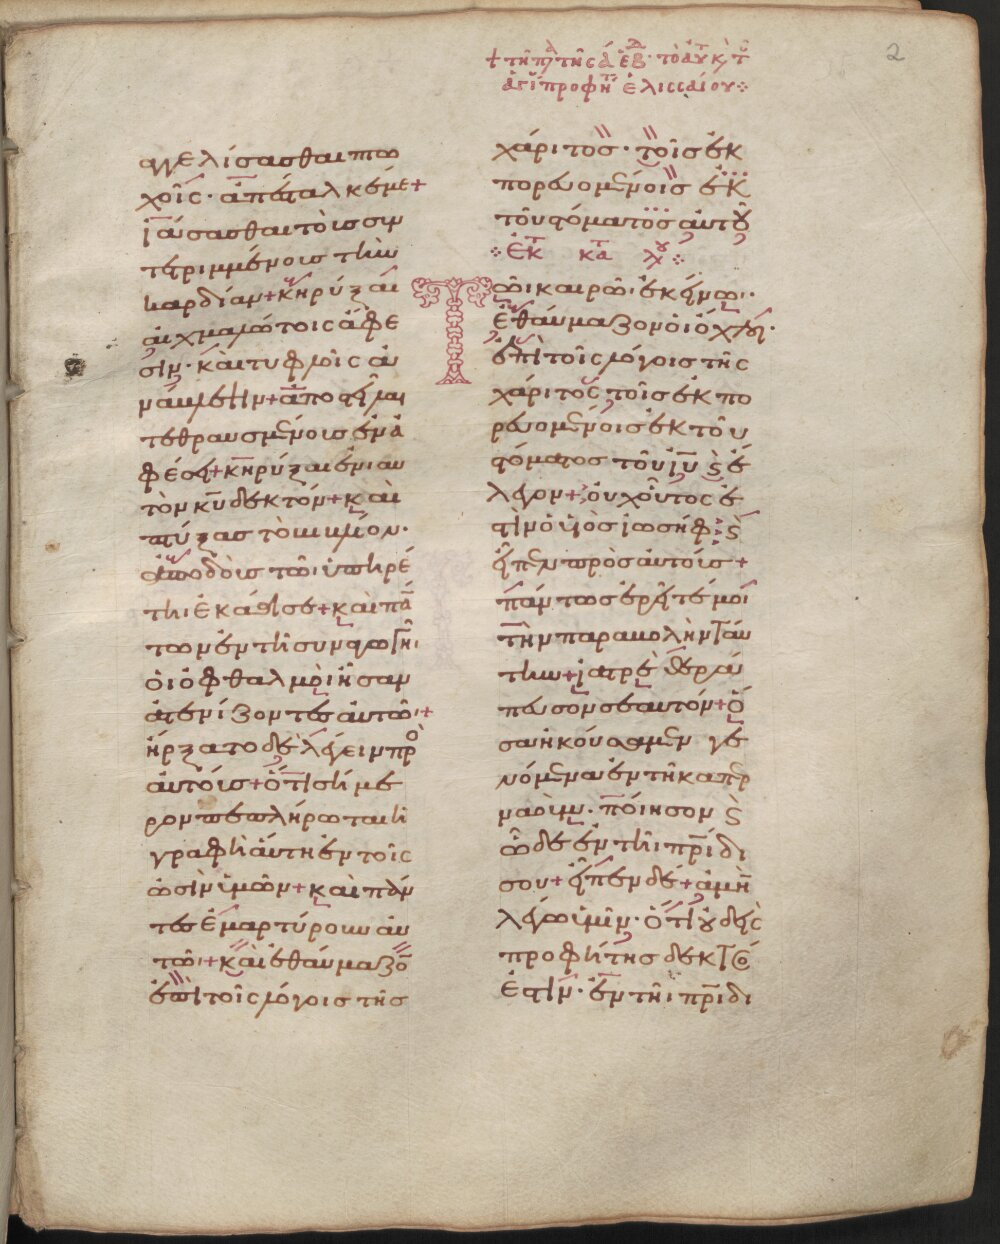 2
+ τῆ πα τῆς ά ἑβ. τὸ αυτ κ, τοῦ
ἁγι προφήτ ἐλισσαίου
αγγελίσασθαι πτω
χοῖς· ἀπέσταλκέ με +
ἰάσασθαι τοὺς συν
τετριμμένους τὴν
καρδίαν + κηρύξαι
αἰχμαλώτοις ἄφε
σιν· καὶ τυφλοῖς ἀ
νάβλεψιν + ἀποστεῖλαι
τεθραυσμένους ἐν ἀ
φέσει + κηρύξαι ἐνιαυ
τὸν κυ δεκτόν + καὶ
πτύξας τὸ βιβλίον·
ἀποδοὺς τῶ ὑπηρέ
τη ἐκάθισε + καὶ πά
των ἐν τῆ συναγωγῆ·
οἱ ὀφθαλμοὶ ἦσαν
ἀτενίζοντες αὐτῶ· +
ἤρξατο δὲ λέγειν πρὸ
αὐτούς + ὅτι σήμε
ρον πεπλήρωται ἡ
γραφὴ αὕτη ἐν τοῖς
ὠσὶν ὑμῶν + καὶ πάν
τες ἐμαρτύρουν αὐ
τῶ· + καὶ ἐθαύμαζο
ἐπὶ τοῖς λόγοις τῆς
χάριτος· τοῖς ἐκ
πορευομένοις ἐκ
τοῦ στόματος αὐτοῦ
ἐκ τ κατ λου
Τῶι καιρῶ· ἐκείνω··
ἐθαύμαζον οἱ ὄχλοι·
ἐπὶ τοῖς λόγοις τῆς
χάριτος τοῖς ἐκπο
ρευομένοις ἐκ τοῦ
στόματος τοῦ ιυ ς ἔ
λεγον + οὐχ οὗτος ἐ
στιν ὁ υἱὸς ἰωσήφ ς
εἶπεν πρὸς αὐτούς +
πάντως ἐρεῖτέ μοι
τὴν παραβολὴν ταύ
την + ἰατρὲ θερά
πευσον σεαυτόν + ὅ
σα ἠκούσαμεν γε
νόμενα ἐν τῆ καπερ
ναούμ· ποίησον ς
ὧδε ἐν τῆι πρίδι
σου + εἶπεν δέ + ἀμὴν
λέγω ὑμῖν· ὅτι οὐδεὶς
προφήτης δεκτός
ἐστιν· ἐν τῆι πρίδι